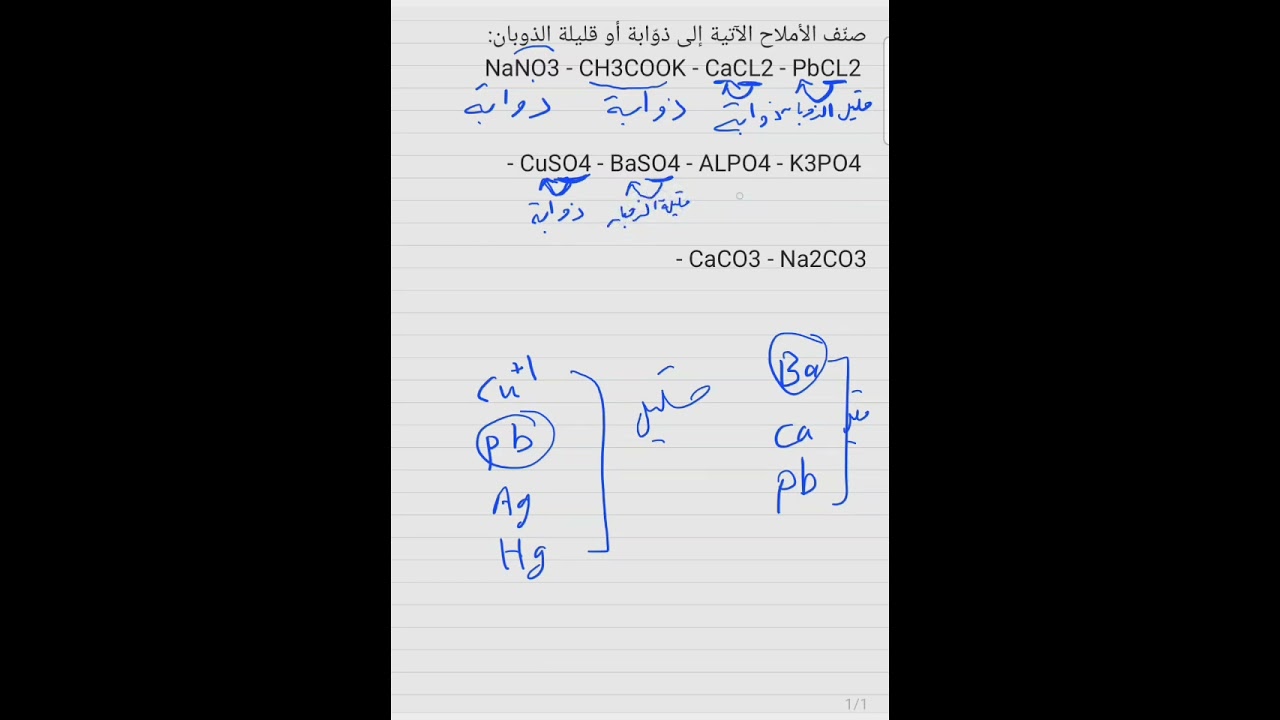 صنّف الأملاح الآتية إلى ذوّابة أو قليلة الذوبان:
NaNO3 - CH3COOK - CaCL2 - PbCL2
ذوابة ذوابة ذوابة قليل الذوبان
- CuSO4 - BaSO4 - ALPO4 - K3PO4
ذوابة قليلة الذوبان
- CaCO3 - Na2CO3
Cu+1
pb
Ag
Hg
قليل
Ba
Ca
pb
قليل
1/1